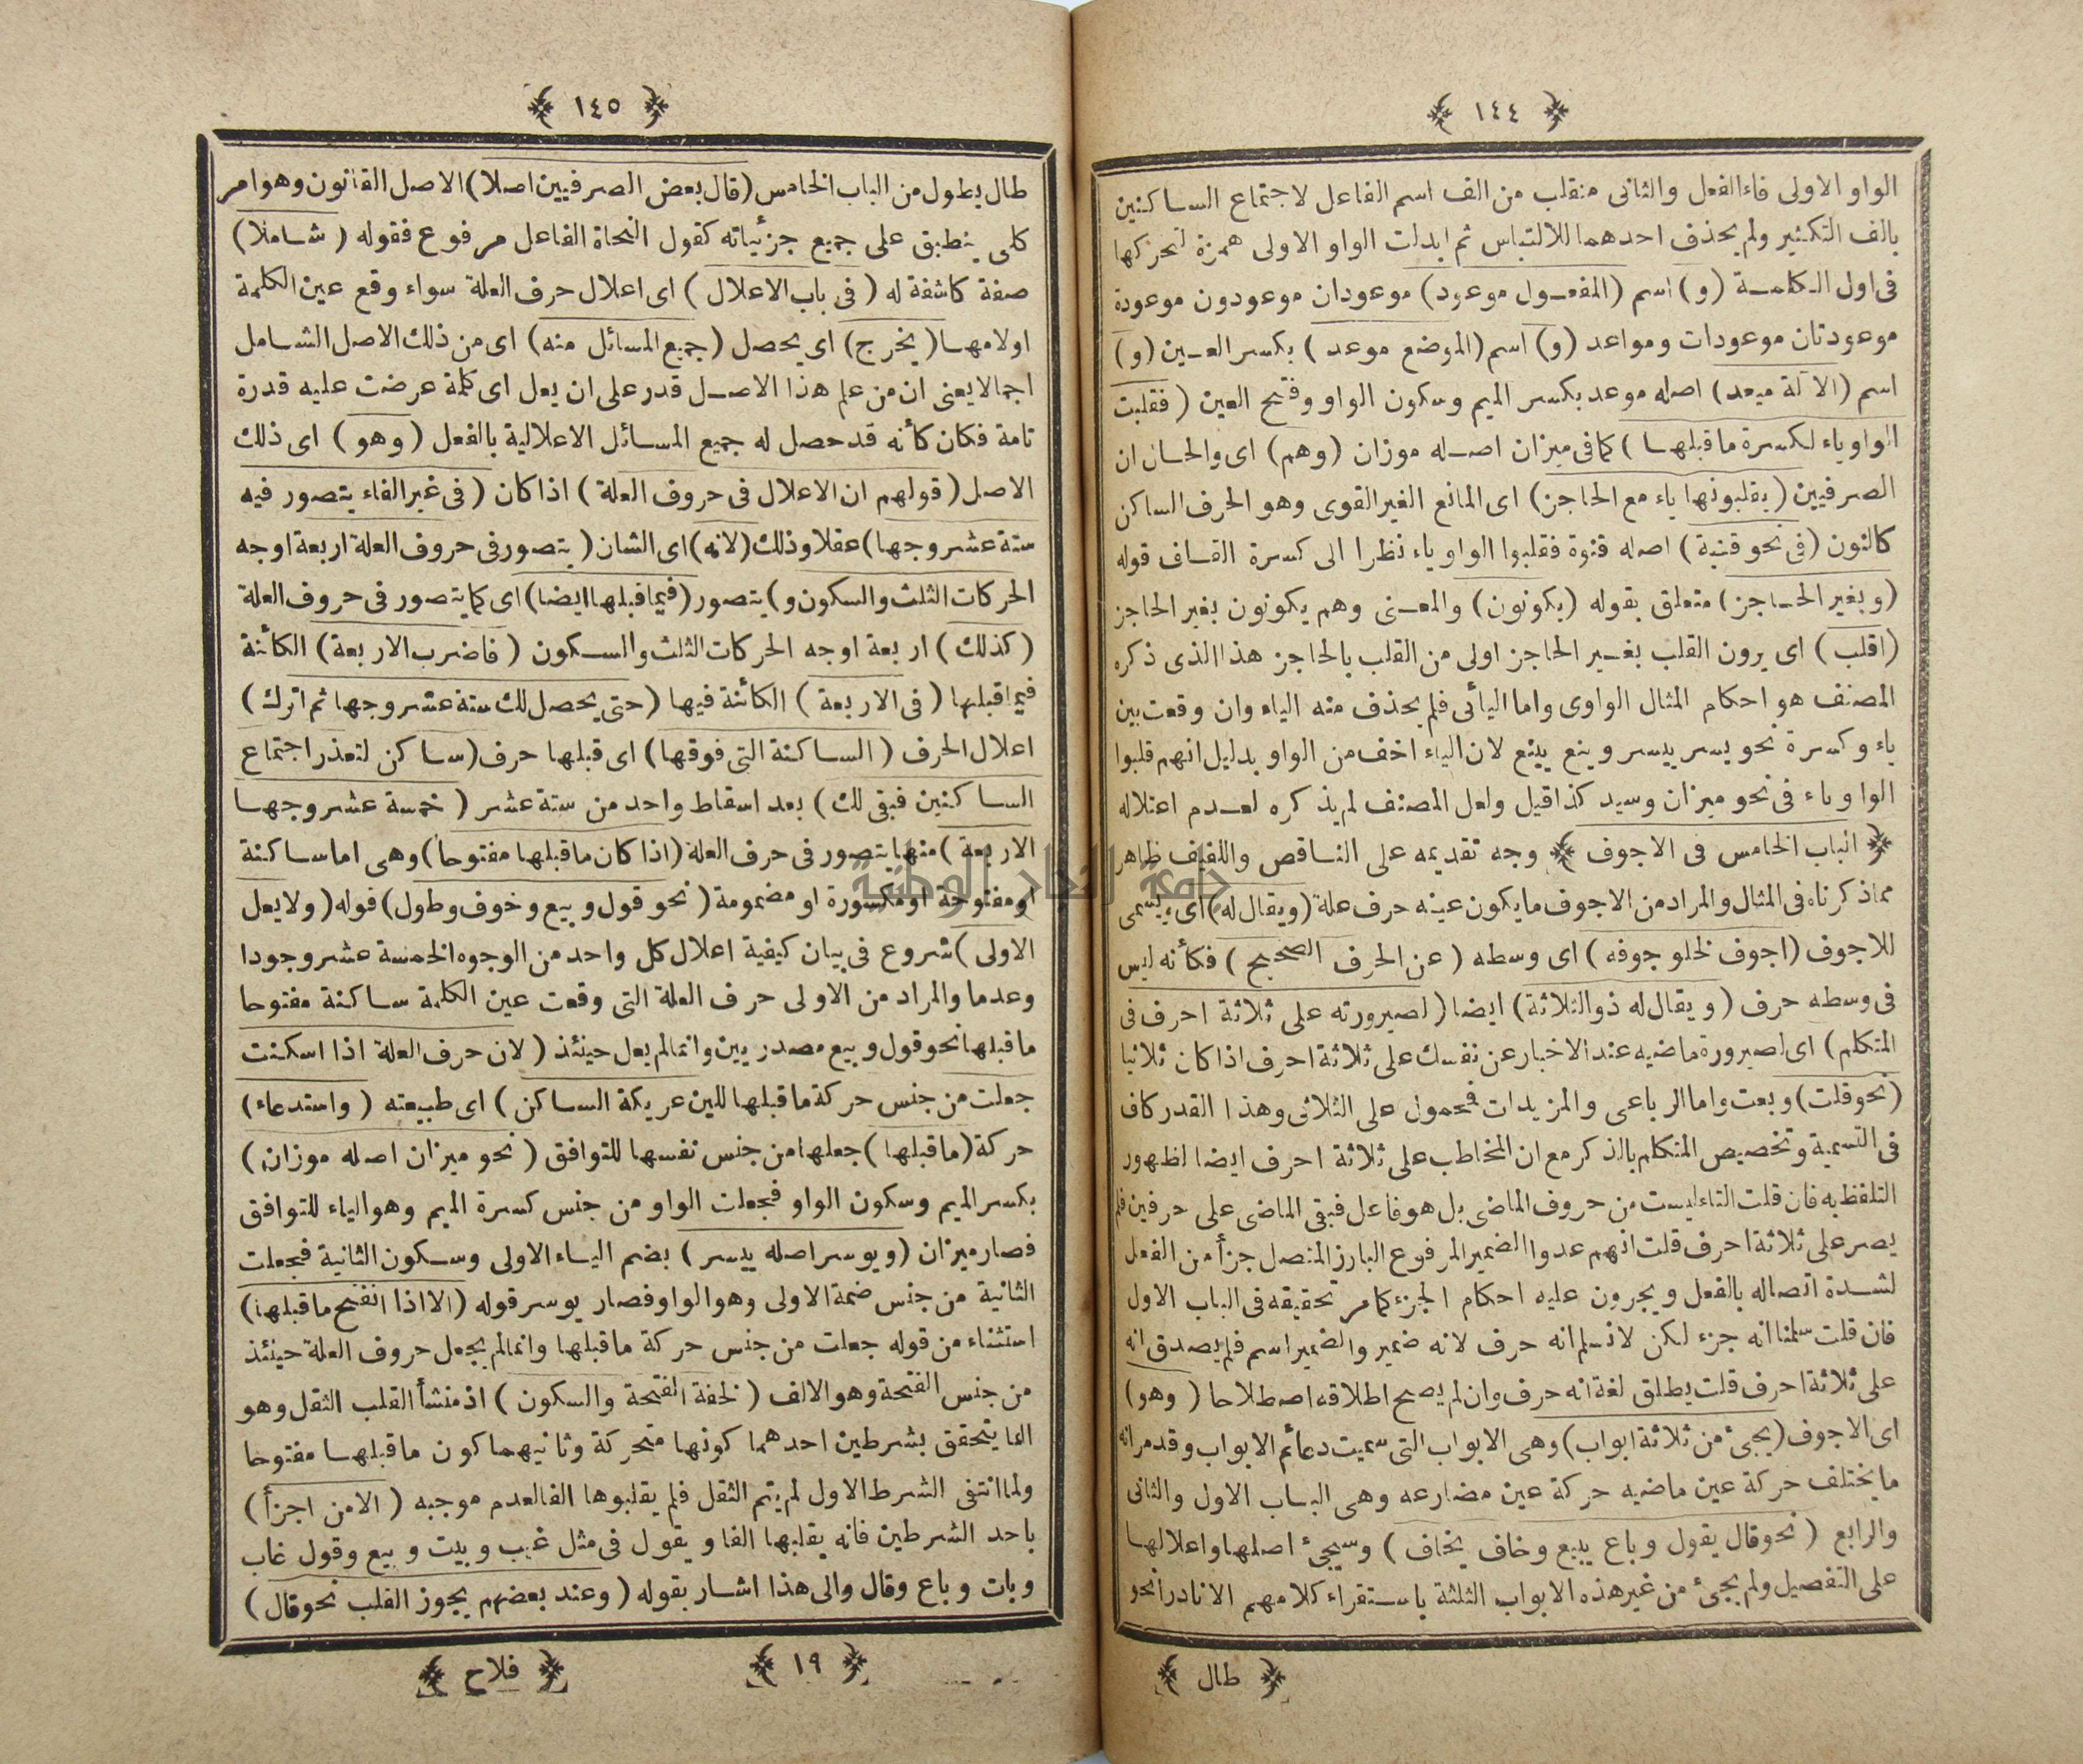 ﴿ ١٤٤ ﴾
الواو الاولى فاء الفعل والثانى منقلب من الف اسم الفاعل لاجتماع الساكنين
بالف التكثير ولم يحذف احدهما للالتباس ثم ابدلت الواو الاولى همزة لتحركها
فى اول الكلمة (و) اسم (المفعول موعود) موعودان موعودون موعودة
موعودتان موعودات ومواعد (و) اسم (الموضع موعد) بكسر العين (و)
اسم (الآلة ميعد) اصله موعد بكسر الميم وسكون الواو وفتح العين (فقلبت
الواو ياء لكسرة ما قبلها) كما فى ميزان اصله موزان (وهم) اى والحال ان
الصرفيين (يقلبونها ياء مع الحاجز) اى المانع الغير القوى وهو الحرف الساكن
كالنون (فى نحو قنية) اصله قنوة فقلبوا الواو ياء نظرا الى كسرة القاف قوله
(وبغير الحاجز) متعلق بقوله (يكونون) والمعنى وهم يكونون بغير الحاجز
(اقلب) اى يرون القلب بغير الحاجز اولى من القلب بالحاجز هذا الذى ذكره
المصنف هو احكام المثال الواوى واما اليائى فلم يحذف منه الياء وان وقعت بين
ياء وكسرة نحو يسر ييسر وينع يينع لان الياء اخف من الواو بدليل انهم قلبوا
الواو ياء فى نحو ميزان وسيد كذا قيل ولعل المصنف لم يذكره لعدم اعتلاله
﴿ الباب الخامس فى الاجوف ﴾ وجه تقديمه على الناقص واللفيف ظاهر
مما ذكرناه فى المثال والمراد من الاجوف ما يكون عينه حرف علة (ويقال له) اى يسمى
للاجوف (اجوف لخلو جوفه) اى وسطه (عن الحرف الصحيح) فكأنه ليس
فى وسطه حرف (ويقال له ذو الثلاثة) ايضا (لصيرورته على ثلاثة احرف فى
المتكلم) اى لصيرورة ماضيه عند الاخبار عن نفسك على ثلاثة احرف اذا كان ثلاثيا
(نحو قلت) وبعت واما الرباعى والمزيدات فمحمول على الثلاثى وهذا القدر كاف
فى التسمية وتخصيص المتكلم بالذكر مع ان المخاطب على ثلاثة احرف ايضا لظهور
التلفظ به فان قلت التاء ليست من حروف الماضى بل هو فاعل فبقى الماضى على حرفين فلم
يصر على ثلاثة احرف قلت انهم عدوا الضمير المرفوع البارز المتصل جزأ من الفعل
لشدة اتصاله بالفعل ويجرون عليه احكام الجزء كما مر تحقيقه فى الباب الاول
فان قلت سلمنا انه جزء لكن لانسلم انه حرف لانه ضمير والضمير اسم فلم يصدق انه
على ثلاثة احرف قلت يطلق لغة انه حرف وان لم يصح اطلاقه اصطلاحا (وهو)
اى الاجوف (يجئ من ثلاثة ابواب) وهى الابواب التى سميت دعائم الابواب وقد مر انه
ما يختلف حركة عين ماضيه حركة عين مضارعه وهى الباب الاول والثانى
والرابع (نحو قال يقول وباع يبيع وخاف يخاف) وسيجئ اصلها واعلالها
على التفصيل ولم يجئ من غير هذه الابواب الثلثة باستقراء كلامهم الا نادرا نحو
﴿ طال ﴾
﴿ ١٤٥ ﴾
طال يطول من الباب الخامس (قال بعض الصرفيين اصلا) الاصل القانون وهو امر
كلى ينطبق على جميع جزئياته كقول النحاة الفاعل مرفوع فقوله (شاملا)
صفة كاشفة له (فى باب الاعلال) اى اعلال حرف العلة سواء وقع عين الكلمة
اولامها (يخرج) اى يحصل (جميع المسائل منه) اى من ذلك الاصل الشامل
اجمالا يعنى ان من علم هذا الاصل قدر على ان يعل اى كلمة عرضت عليه قدرة
تامة فكان كأنه قد حصل له جميع المسائل الاعلالية بالفعل (وهو) اى ذلك
الاصل (قولهم ان الاعلال فى حروف العلة) اذا كان (فى غير الفاء يتصور فيه
ستة عشر وجها) عقلا وذلك (لانه) اى الشان (يتصور فى حروف العلة اربعة اوجه
الحركات الثلث والسكون و) يتصور (فيما قبلها ايضا) اى كما يتصور فى حروف العلة
(كذلك) اربعة اوجه الحركات الثلث والسكون (فاضرب الاربعة) الكائنة
فيما قبلها (فى الاربعة) الكائنة فيها (حتى يحصل لك ستة عشر وجها ثم اترك)
اعلال الحرف (الساكنة التى فوقها) اى قبلها حرف (ساكن لتعذر اجتماع
الساكنين فبقى لك) بعد اسقاط واحد من ستة عشر (خمسة عشر وجها
الاربعة) منها يتصور فى حرف العلة (اذا كان ما قبلها مفتوحا) وهى اما ساكنة
او مفتوحة او مكسورة او مضمومة (نحو قول وبيع وخوف وطول) قوله (ولا يعل
الاولى) شروع فى بيان كيفية اعلال كل واحد من الوجوه الخمسة عشر وجودا
وعدما والمراد من الاولى حرف العلة التى وقعت عين الكلمة ساكنة مفتوحا
ما قبلها نحو قول وبيع مصدريين وانما لم يعل حينئذ (لان حرف العلة اذا اسكنت
جعلت من جنس حركة ما قبلها للين عريكة الساكن) اى طبيعته (واستدعاء)
حركة (ما قبلها) جعلها من جنس نفسها للتوافق (نحو ميزان اصله موزان)
بكسر الميم وسكون الواو فجعلت الواو من جنس كسرة الميم وهو الياء للتوافق
فصار ميزان (ويوسر اصله ييسر) بضم الياء الاولى وسكون الثانية فجعلت
الثانية من جنس ضمة الاولى وهو الواو فصار يوسر قوله (الا اذا انفتح ما قبلها)
استثناء من قوله جعلت من جنس حركة ما قبلها وانما لم يجعل حروف العلة حينئذ
من جنس الفتحة وهو الالف (لخفة الفتحة والسكون) اذ منشأ القلب الثقل وهو
انما يتحقق بشرطين احدهما كونها متحركة وثانيهما كون ما قبلها مفتوحا
ولما انتفى الشرط الاول لم يتم الثقل فلم يقلبوها الفا لعدم موجبه (الا من اجزأ)
باحد الشرطين فانه يقلبها الفا ويقول فى مثل غيب وبيت وبيع وقول غاب
وبات وباع وقال والى هذا اشار بقوله (وعند بعضهم يجوز القلب نحو قال)
﴿ ١٩ ﴾ ﴿ فلاح ﴾
جامعة النجاح الوطنية